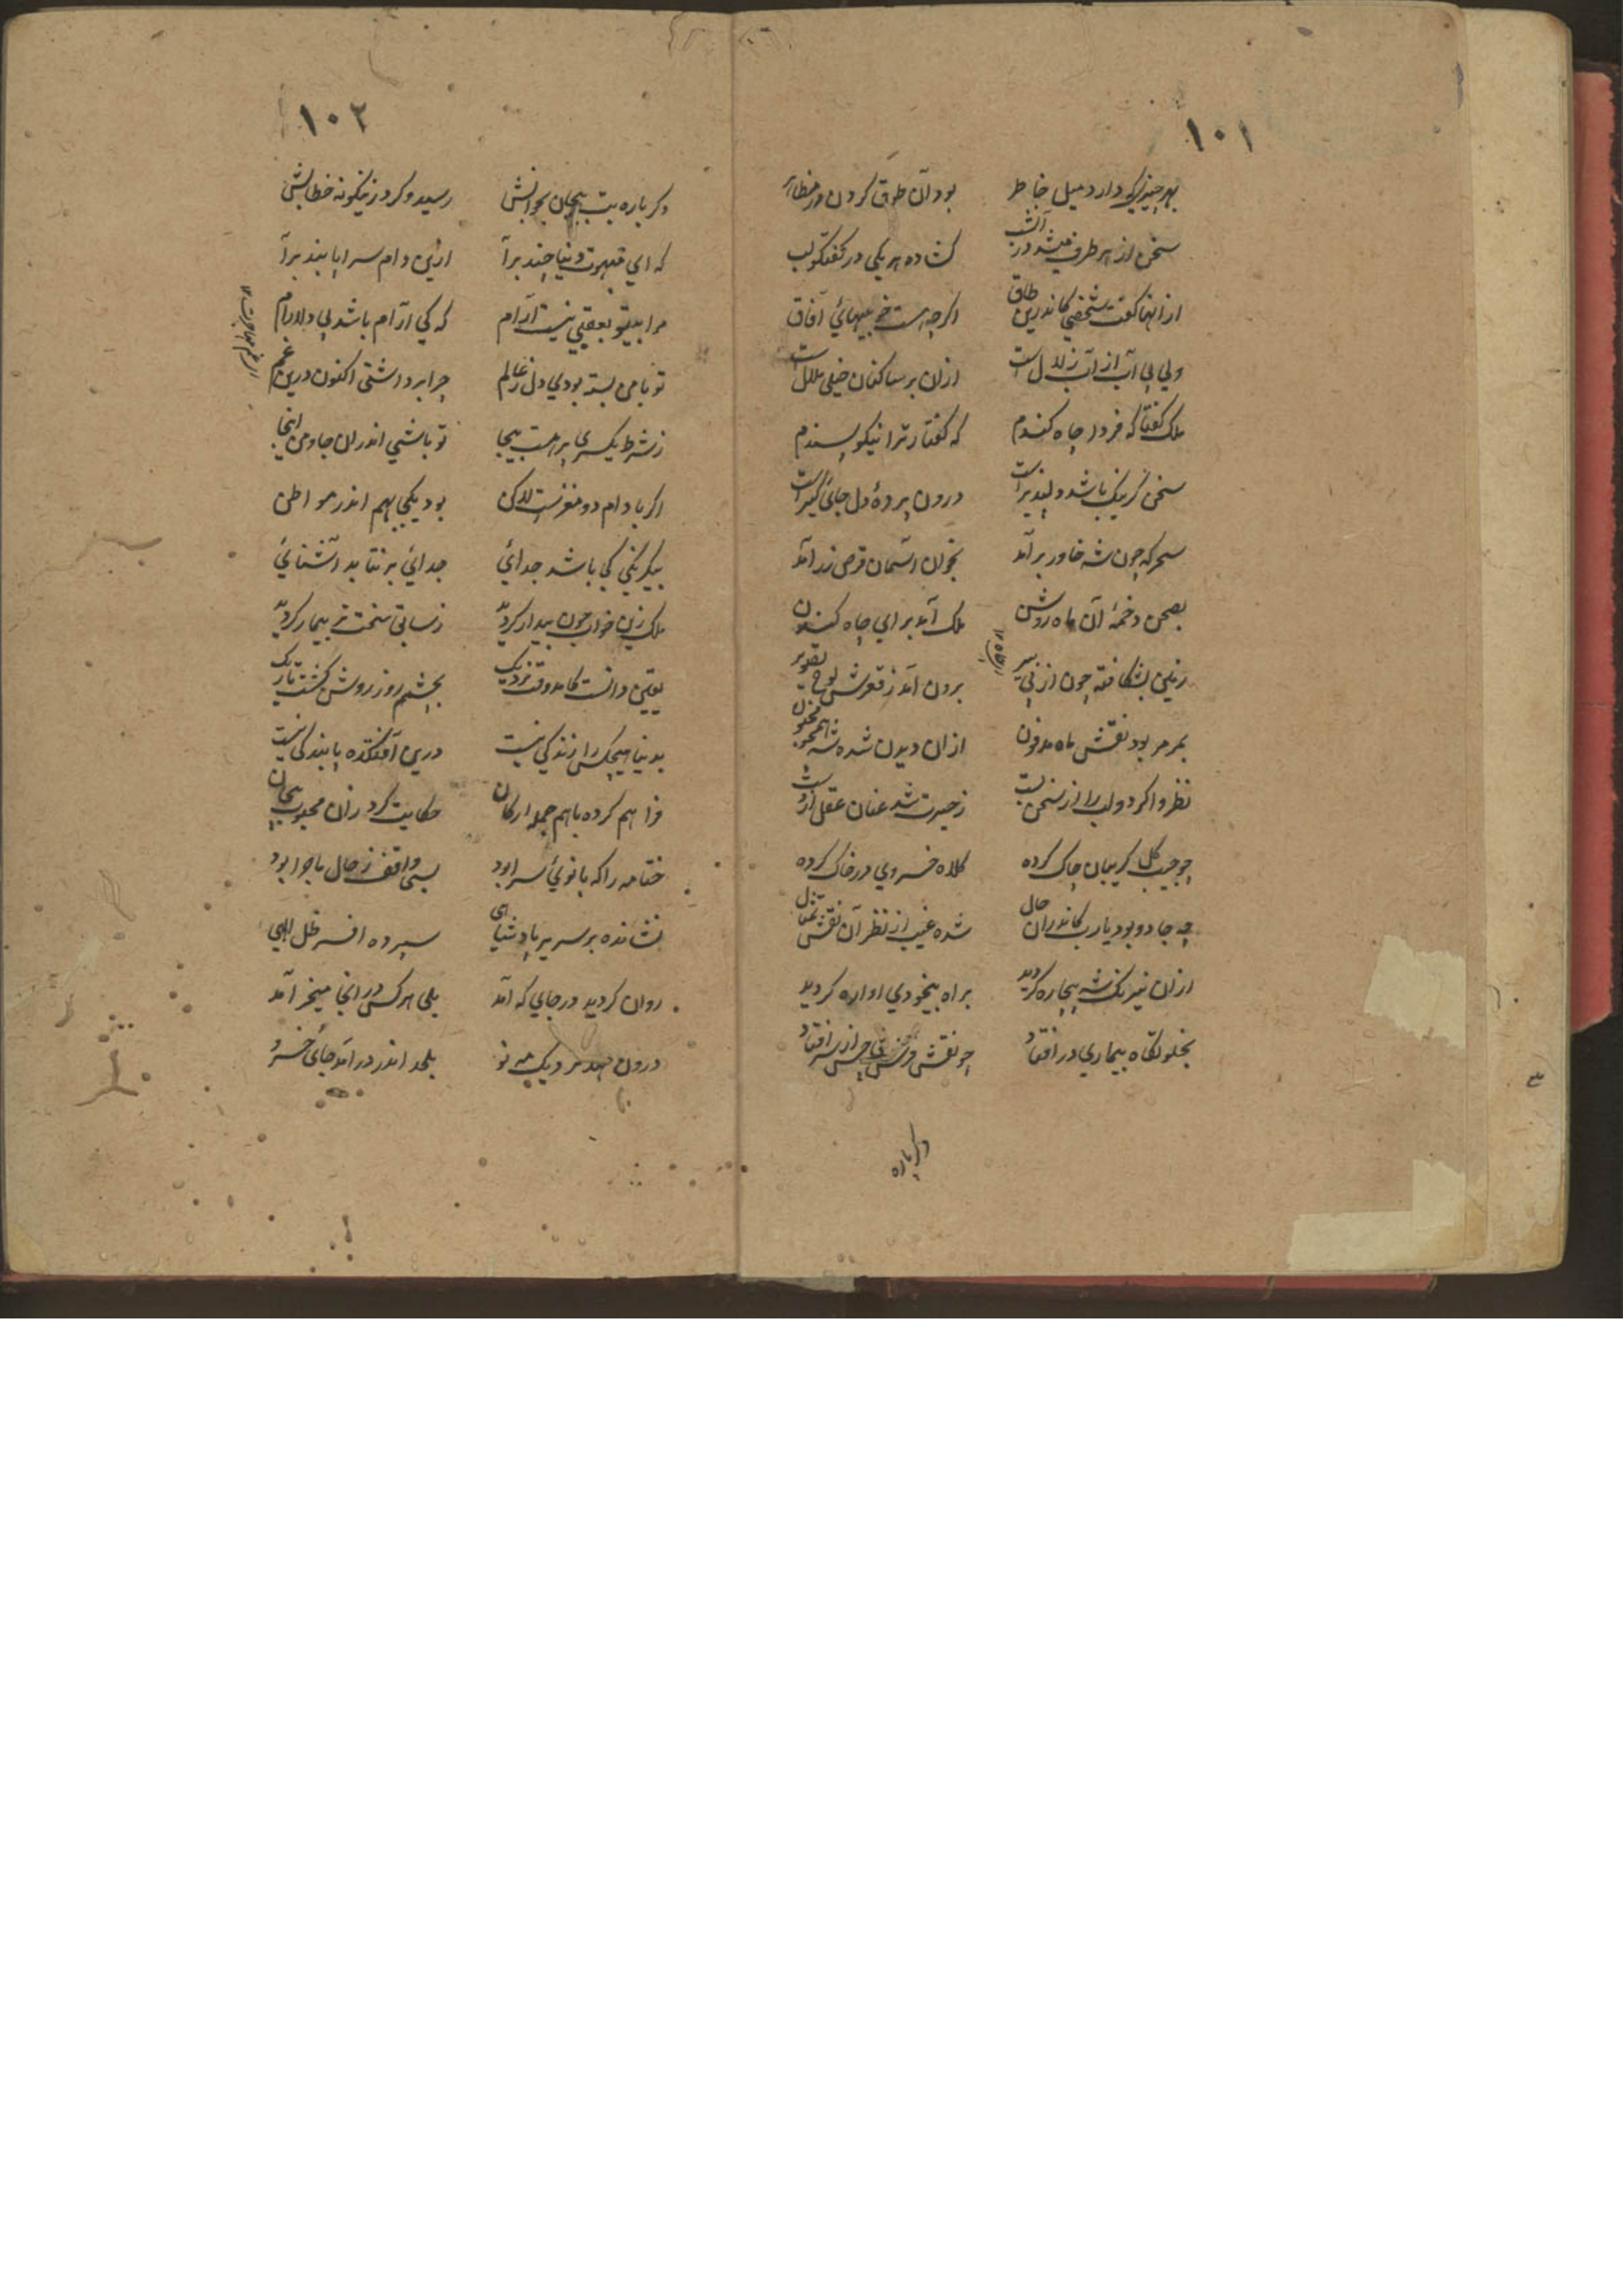 ۱۰۱
بهر چیزیکه دارد میل خاطر بود آن طوق کردن در مظاهر
سخن از هر طرف میشد در آنشب کشاده هر یکی در گفتگو لب
از انها گفت شخصی کاندرین طاق اگرچه هست خوبیهائ آفاق
ولی بی آب از آب زلال است ازان بر ساکنان خیلی ملال است
ملک گفتا که فردا چاه کندم که گفتار ترا نیکو پسندم
سخن گر نیک باشد دلپذیر است درون پردهٔ دل جائ گیر است
سحرگه چون شه خاور برآمد بخوان آسمان قرص زر آمد
بصحن دخمهٔ آن ماه روشن ملک آمد برای چاه کندن
زمین بشکافته چون از پی برون آمد ز قعرش لوح تصویر
بمرمر بود نقش ماه مدفون ازان دیدن شده شه همچو مجنون
نظر وا کرد و لب را از سخن بست ز حیرت شد عنان عقل از دست
چو جیب گل گریبان چاک کرده کلاه خسروی در خاک کرده
چه جادو بود یارب کاندران حال شده غیب از نظر آن نقش تمثال
ازان نیرنگ شه بیچاره گردید براه بیخودی اواره گردید
بخلوتگاه بیماری در افتاد چو نقش تاجش از سر افتاد
دگرباره
۱۰۲
دگرباره بت بیجان بخوابش رسید و کرد زینگونه خطابش
که ای قید دنیا چند برآ ازین دام سراپا بند برآ
مرا بیتو بعقبی نیست آرام که کی آرام باشد بی دلارام
تو با من بسته بودی دل ز عالم چرا برداشتی اکنون درین غم
ز شرط یکسری بر هست بیجا تو باشی اندران جا و من اینجا
اگر بادام دو مغزست لاکن بود یکجی بهم اندر مواطن
بیکرنگی کی باشد جدائی جدائی برنتابد آشنائی
ملک زین خواب چون بیدار گردید ز سابق سخت تر بیمار گردید
یقین دانست کامد وقت نزدیک بچشمم روز روشن گشت تاریک
بدنیا هیچکس را زندگی نیست درین آفتکده پایندگی نیست
فراهم کرده باهم جمله ارکان حکایت کرد زان محبوب بیجان
ختامه را که بانوئ سرا بود بسی واقف ز حال ماجرا بود
نشانده بر سریر پادشاهی سپرده افسر ظل الهی
روان گردید در جایی که آمد بلی هر کس در انجا میخرامد
درون مهد نزدیک مه نو بلحد اندر درآمد جائ خسرو